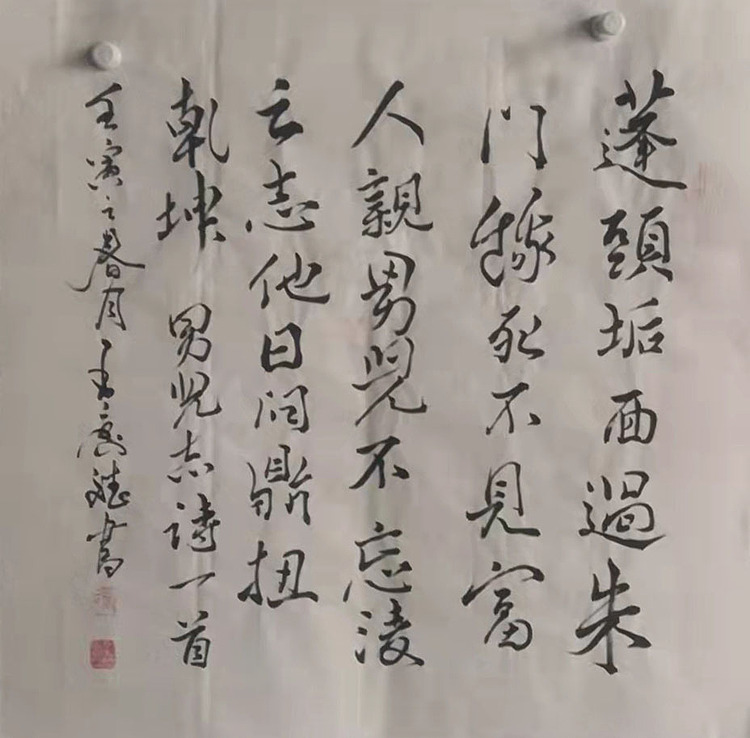 蓬頭垢面過朱
门豫死不見富
人親男兒不忘淩
云志他日问鼎扭
乾坤 男児志詩一首
壬寅之春月书